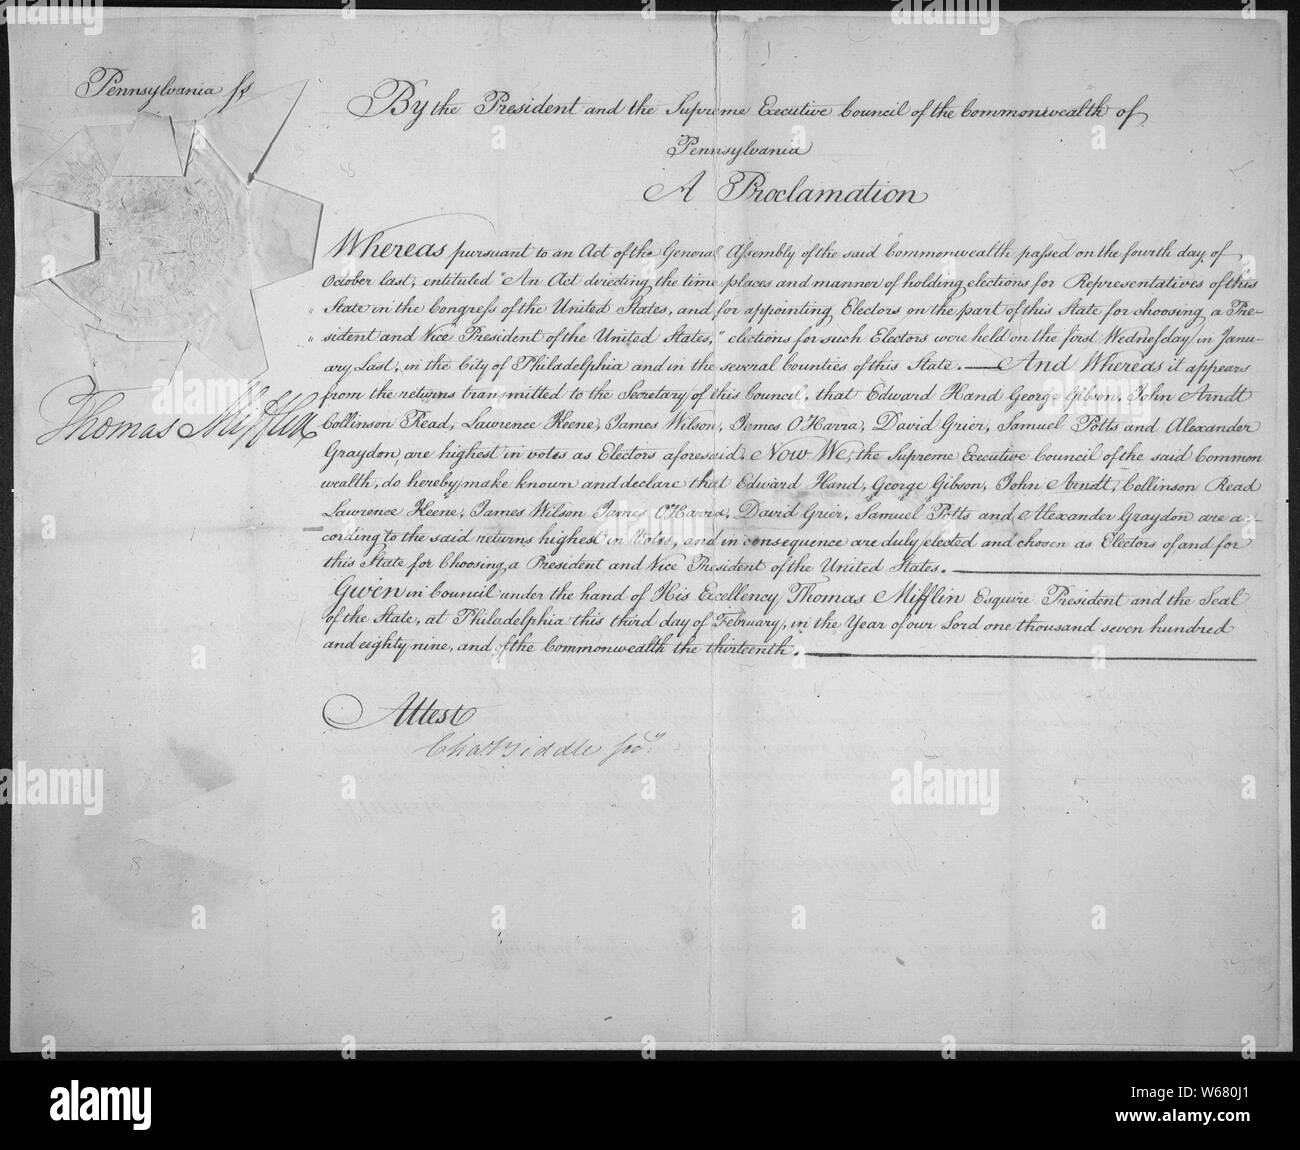 Pennsylvania ss
By the President and the Supreme Executive Council of the Commonwealth of
Pennsylvania
A Proclamation
Whereas pursuant to an Act of the General Assembly of the said Commonwealth passed on the fourth day of
October last, entituled "An Act directing the time places and manner of holding elections for Representatives of this
" State in the Congress of the United States, and for appointing Electors on the part of this State for choosing a Pre-
" sident and Vice President of the United States," elections for such Electors were held on the first Wednesday in Janu-
ary Last, in the City of Philadelphia and in the several Counties of this State. — And Whereas it appears
from the returns transmitted to the Secretary of this Council, that Edward Hand George Gibson, John Arndt
Collinson Read, Lawrence Keene, James Wilson, James O'Harra, David Grier, Samuel Potts and Alexander
Graydon, are highest in votes as Electors aforesaid. Now We, the Supreme Executive Council of the said Common
wealth, do hereby make known and declare that Edward Hand, George Gibson, John Arndt, Collinson Read
Lawrence Keene, James Wilson James O'Harra, David Grier, Samuel Potts and Alexander Graydon are ac-
cording to the said returns highest in Votes, and in consequence are duly elected and chosen as Electors of and for
this State for Choosing a President and Vice President of the United States.
Given in Council under the hand of His Excellency Thomas Mifflin Esquire President and the Seal
of the State, at Philadelphia this third day of February, in the Year of our Lord one thousand seven hundred
and eighty nine, and of the Commonwealth the thirteenth.
Thomas Mifflin
Attest
Cha Biddle Secy.
alamy
alamy
alamy
alamy
alamy
alamy
alamy
Image ID: W680J1
www.alamy.com